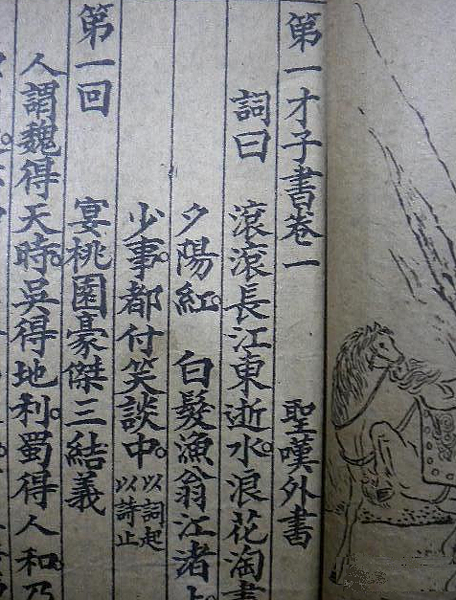 第一才子書卷一 聖嘆外書
詞曰 滾滾長江東逝水。浪花淘盡
夕陽紅。 白髮漁翁江渚上
少事。都付笑談中。以詞起以詩止
第一回 宴桃園豪傑三結義
人謂魏得天時。吳得地利。蜀得人和。乃